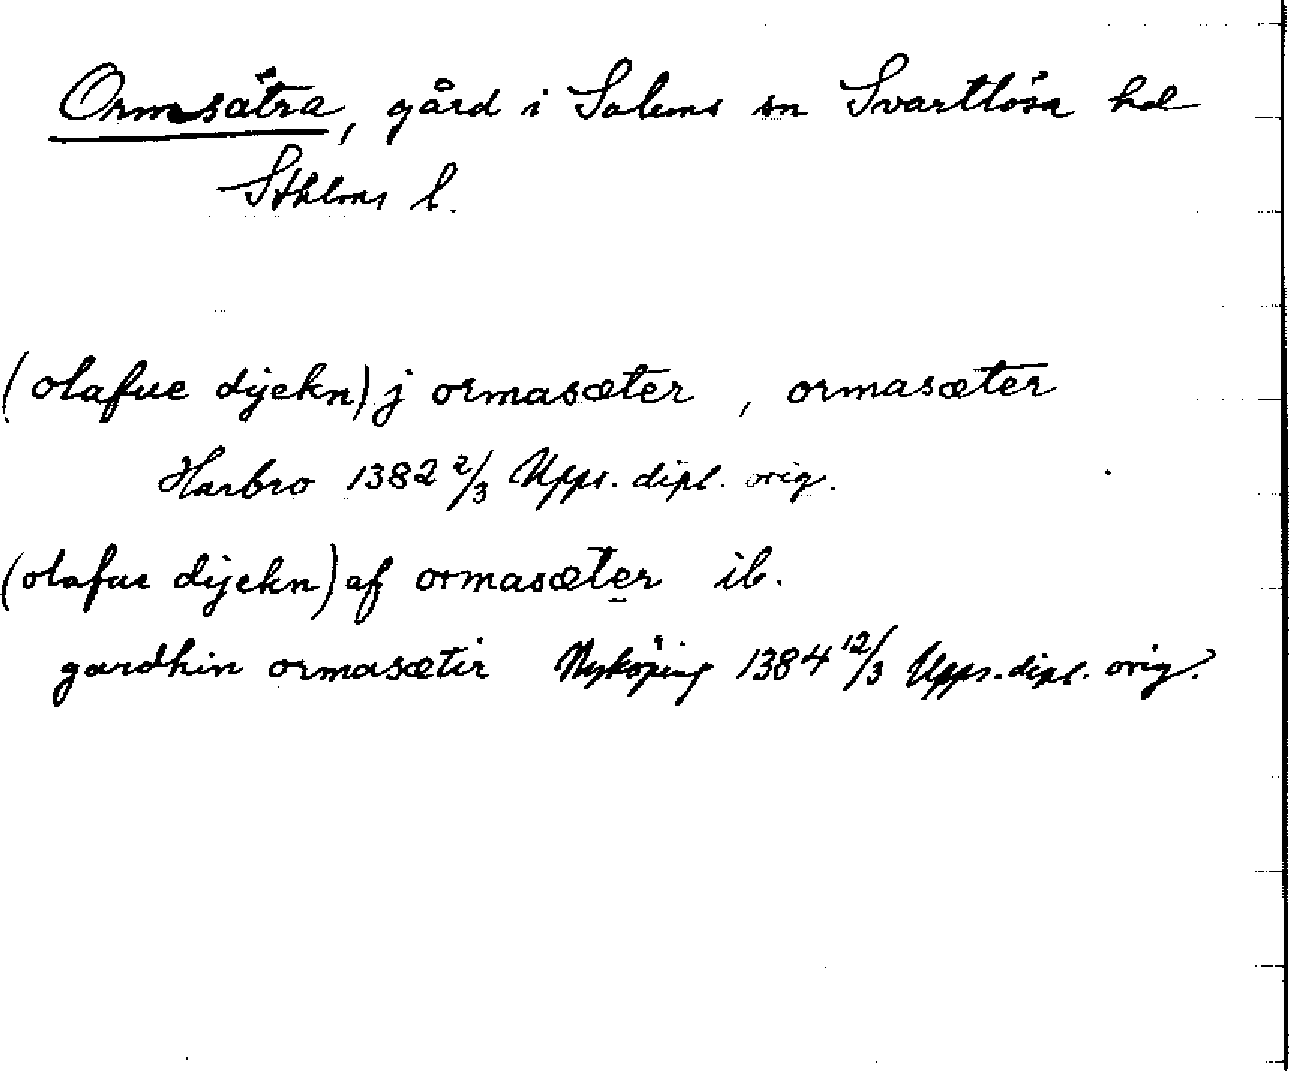 Ormsätra, gård i Salems sn Svartlösa hd
Sthlms l.
(olafue dijekn) j ormasæter, ormasæter
Harbro 1382 2/3 Upps. dipl. orig.
(olafue dijekn) af ormasæter ib.
gardhin ormasætir Nyköping 1384 12/3 Upps. dipl. orig.